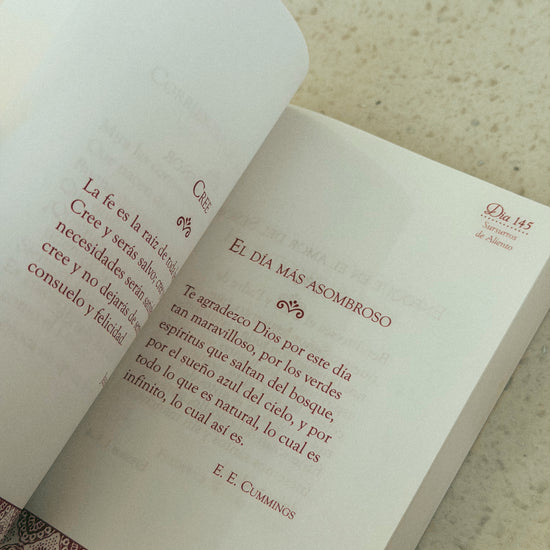 CREE
La fe es la raíz de todo
Cree y serás salvo; cree
necesidades serán
cree y no dejarás de
consuelo y felicidad.
Día 145
Susurros
de Aliento
EL DÍA MÁS ASOMBROSO
Te agradezco Dios por este día
tan maravilloso, por los verdes
espíritus que saltan del bosque,
por el sueño azul del cielo, y por
todo lo que es natural, lo cual es
infinito, lo cual así es.
E. E. CUMMINGS